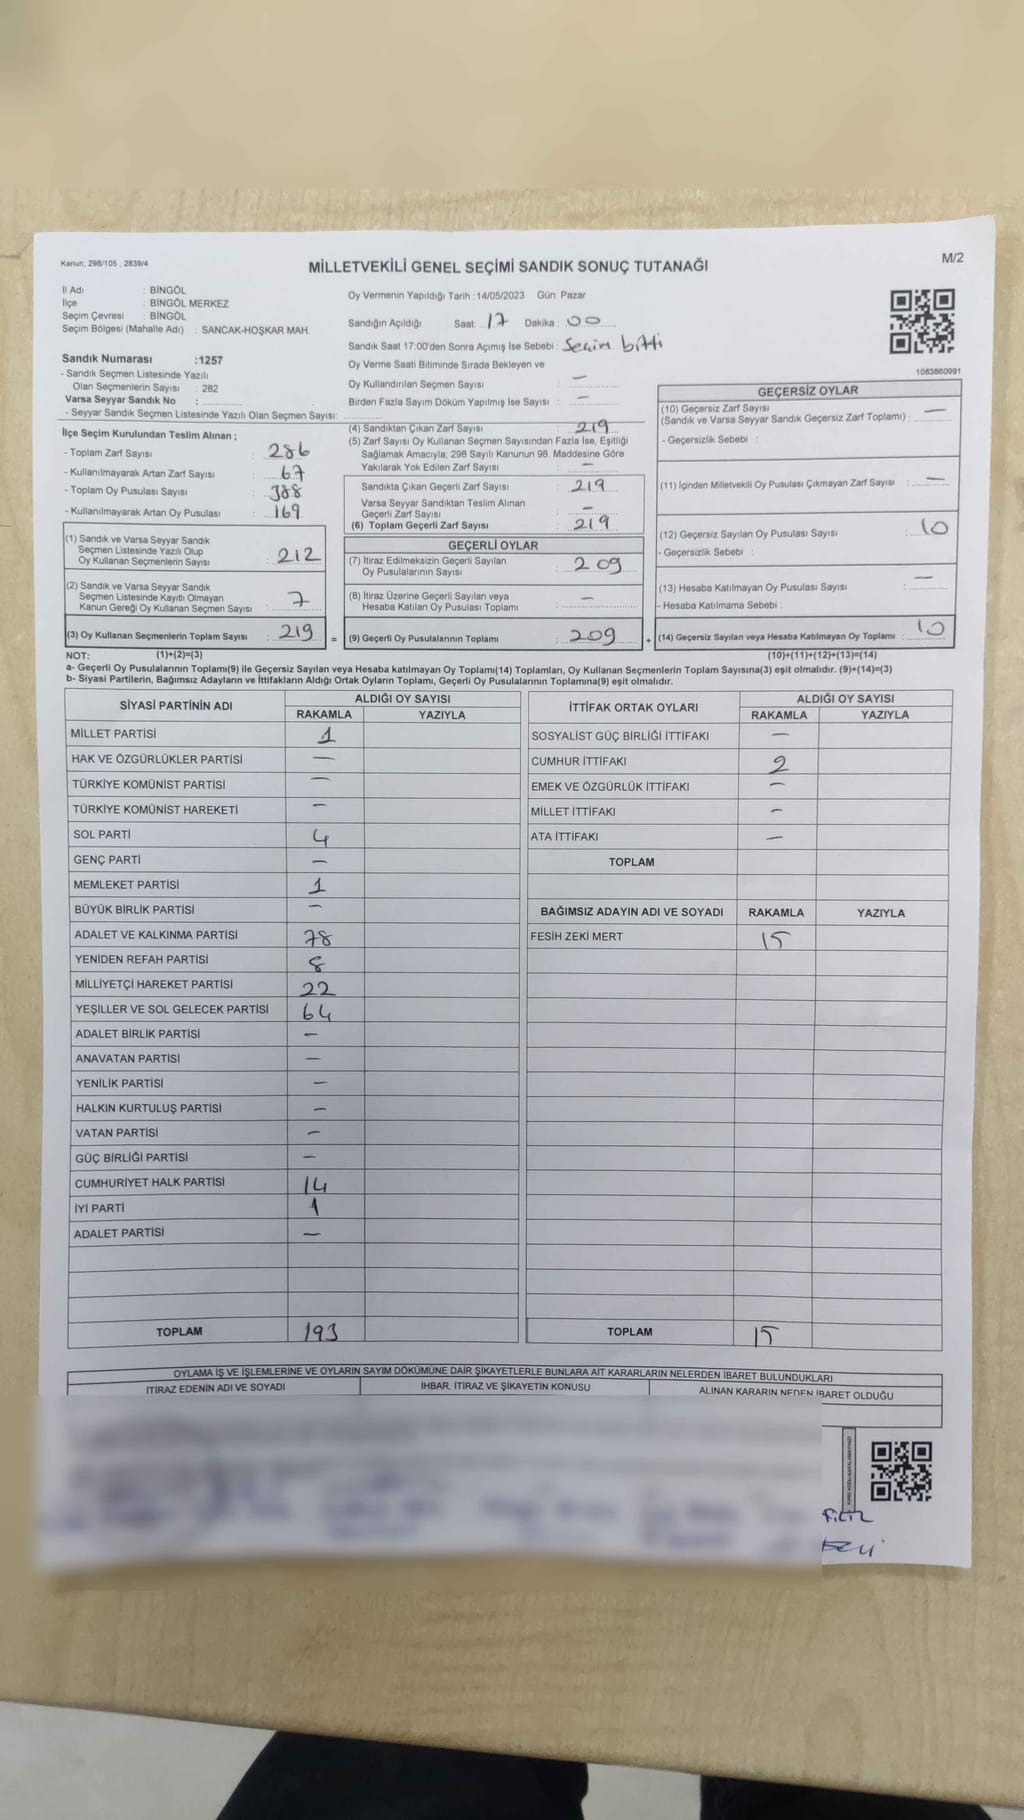 Kanun: 298/105 , 2839/4
MİLLETVEKİLİ GENEL SEÇİMİ SANDIK SONUÇ TUTANAĞI
M/2
İl Adı : BİNGÖL
İlçe : BİNGÖL MERKEZ
Seçim Çevresi : BİNGÖL
Seçim Bölgesi (Mahalle Adı) : SANCAK-HOŞKAR MAH.
Sandık Numarası :1257
- Sandık Seçmen Listesinde Yazılı
Olan Seçmenlerin Sayısı : 282
Varsa Seyyar Sandık No :
- Seyyar Sandık Seçmen Listesinde Yazılı Olan Seçmen Sayısı:
Oy Vermenin Yapıldığı Tarih :14/05/2023 Gün: Pazar
Sandığın Açıldığı Saat: 17 Dakika : 00
Sandık Saat 17:00'den Sonra Açımış İse Sebebi : Seçim bitti
Oy Verme Saati Bitiminde Sırada Bekleyen ve
Oy Kullandırılan Seçmen Sayısı : —
Birden Fazla Sayım Döküm Yapılmış İse Sayısı : —
1083860991
İlçe Seçim Kurulundan Teslim Alınan ;
- Toplam Zarf Sayısı : 286
- Kullanılmayarak Artan Zarf Sayısı : 67
- Toplam Oy Pusulası Sayısı : 388
- Kullanılmayarak Artan Oy Pusulası : 169
(1) Sandık ve Varsa Seyyar Sandık
Seçmen Listesinde Yazılı Olup
Oy Kullanan Seçmenlerin Sayısı : 212
(2) Sandık ve Varsa Seyyar Sandık
Seçmen Listesinde Kayıtlı Olmayan
Kanun Gereği Oy Kullanan Seçmen Sayısı : 7
(3) Oy Kullanan Seçmenlerin Toplam Sayısı : 219 =
(4) Sandıktan Çıkan Zarf Sayısı : 219
(5) Zarf Sayısı Oy Kullanan Seçmen Sayısından Fazla İse, Eşitliği
Sağlamak Amacıyla; 298 Sayılı Kanunun 98. Maddesine Göre
Yakılarak Yok Edilen Zarf Sayısı : —
Sandıkta Çıkan Geçerli Zarf Sayısı : 219
Varsa Seyyar Sandıktan Teslim Alınan
Geçerli Zarf Sayısı : —
(6) Toplam Geçerli Zarf Sayısı : 219
GEÇERLİ OYLAR
(7) İtiraz Edilmeksizin Geçerli Sayılan
Oy Pusulalarının Sayısı : 209
(8) İtiraz Üzerine Geçerli Sayılan veya
Hesaba Katılan Oy Pusulası Toplamı : —
(9) Geçerli Oy Pusulalarının Toplamı : 209 +
GEÇERSİZ OYLAR
(10) Geçersiz Zarf Sayısı
(Sandık ve Varsa Seyyar Sandık Geçersiz Zarf Toplamı) : —
- Geçersizlik Sebebi :
(11) İçinden Milletvekili Oy Pusulası Çıkmayan Zarf Sayısı : —
(12) Geçersiz Sayılan Oy Pusulası Sayısı : 10
- Geçersizlik Sebebi :
(13) Hesaba Katılmayan Oy Pusulası Sayısı : —
- Hesaba Katılmama Sebebi :
(14) Geçersiz Sayılan veya Hesaba Katılmayan Oy Pusulası Toplamı : 10
NOT: (1)+(2)=(3) (10)+(11)+(12)+(13)=(14)
a- Geçerli Oy Pusulalarının Toplamı(9) ile Geçersiz Sayılan veya Hesaba katılmayan Oy Toplamı(14) Toplamları, Oy Kullanan Seçmenlerin Toplam Sayısına(3) eşit olmalıdır. (9)+(14)=(3)
b- Siyasi Partilerin, Bağımsız Adayların ve İttifakların Aldığı Ortak Oyların Toplamı, Geçerli Oy Pusulalarının Toplamına(9) eşit olmalıdır.
SİYASİ PARTİNİN ADI ALDIĞI OY SAYISI
RAKAMLA YAZIYLA
MİLLET PARTİSİ 1
HAK VE ÖZGÜRLÜKLER PARTİSİ —
TÜRKİYE KOMÜNİST PARTİSİ —
TÜRKİYE KOMÜNİST HAREKETİ —
SOL PARTİ 4
GENÇ PARTİ —
MEMLEKET PARTİSİ 1
BÜYÜK BİRLİK PARTİSİ —
ADALET VE KALKINMA PARTİSİ 78
YENİDEN REFAH PARTİSİ 8
MİLLİYETÇİ HAREKET PARTİSİ 22
YEŞİLLER VE SOL GELECEK PARTİSİ 64
ADALET BİRLİK PARTİSİ —
ANAVATAN PARTİSİ —
YENİLİK PARTİSİ —
HALKIN KURTULUŞ PARTİSİ —
VATAN PARTİSİ —
GÜÇ BİRLİĞİ PARTİSİ —
CUMHURİYET HALK PARTİSİ 14
İYİ PARTİ 1
ADALET PARTİSİ —
TOPLAM 193
İTTİFAK ORTAK OYLARI ALDIĞI OY SAYISI
RAKAMLA YAZIYLA
SOSYALİST GÜÇ BİRLİĞİ İTTİFAKI —
CUMHUR İTTİFAKI 2
EMEK VE ÖZGÜRLÜK İTTİFAKI —
MİLLET İTTİFAKI —
ATA İTTİFAKI —
TOPLAM
BAĞIMSIZ ADAYIN ADI VE SOYADI RAKAMLA YAZIYLA
FESİH ZEKİ MERT 15
TOPLAM 15
OYLAMA İŞ VE İŞLEMLERİNE VE OYLARIN SAYIM DÖKÜMÜNE DAİR ŞİKAYETLERLE BUNLARA AİT KARARLARIN NELERDEN İBARET BULUNDUKLARI
İTİRAZ EDENİN ADI VE SOYADI İHBAR, İTİRAZ VE ŞİKAYETİN KONUSU ALINAN KARARIN NEDEN İBARET OLDUĞU